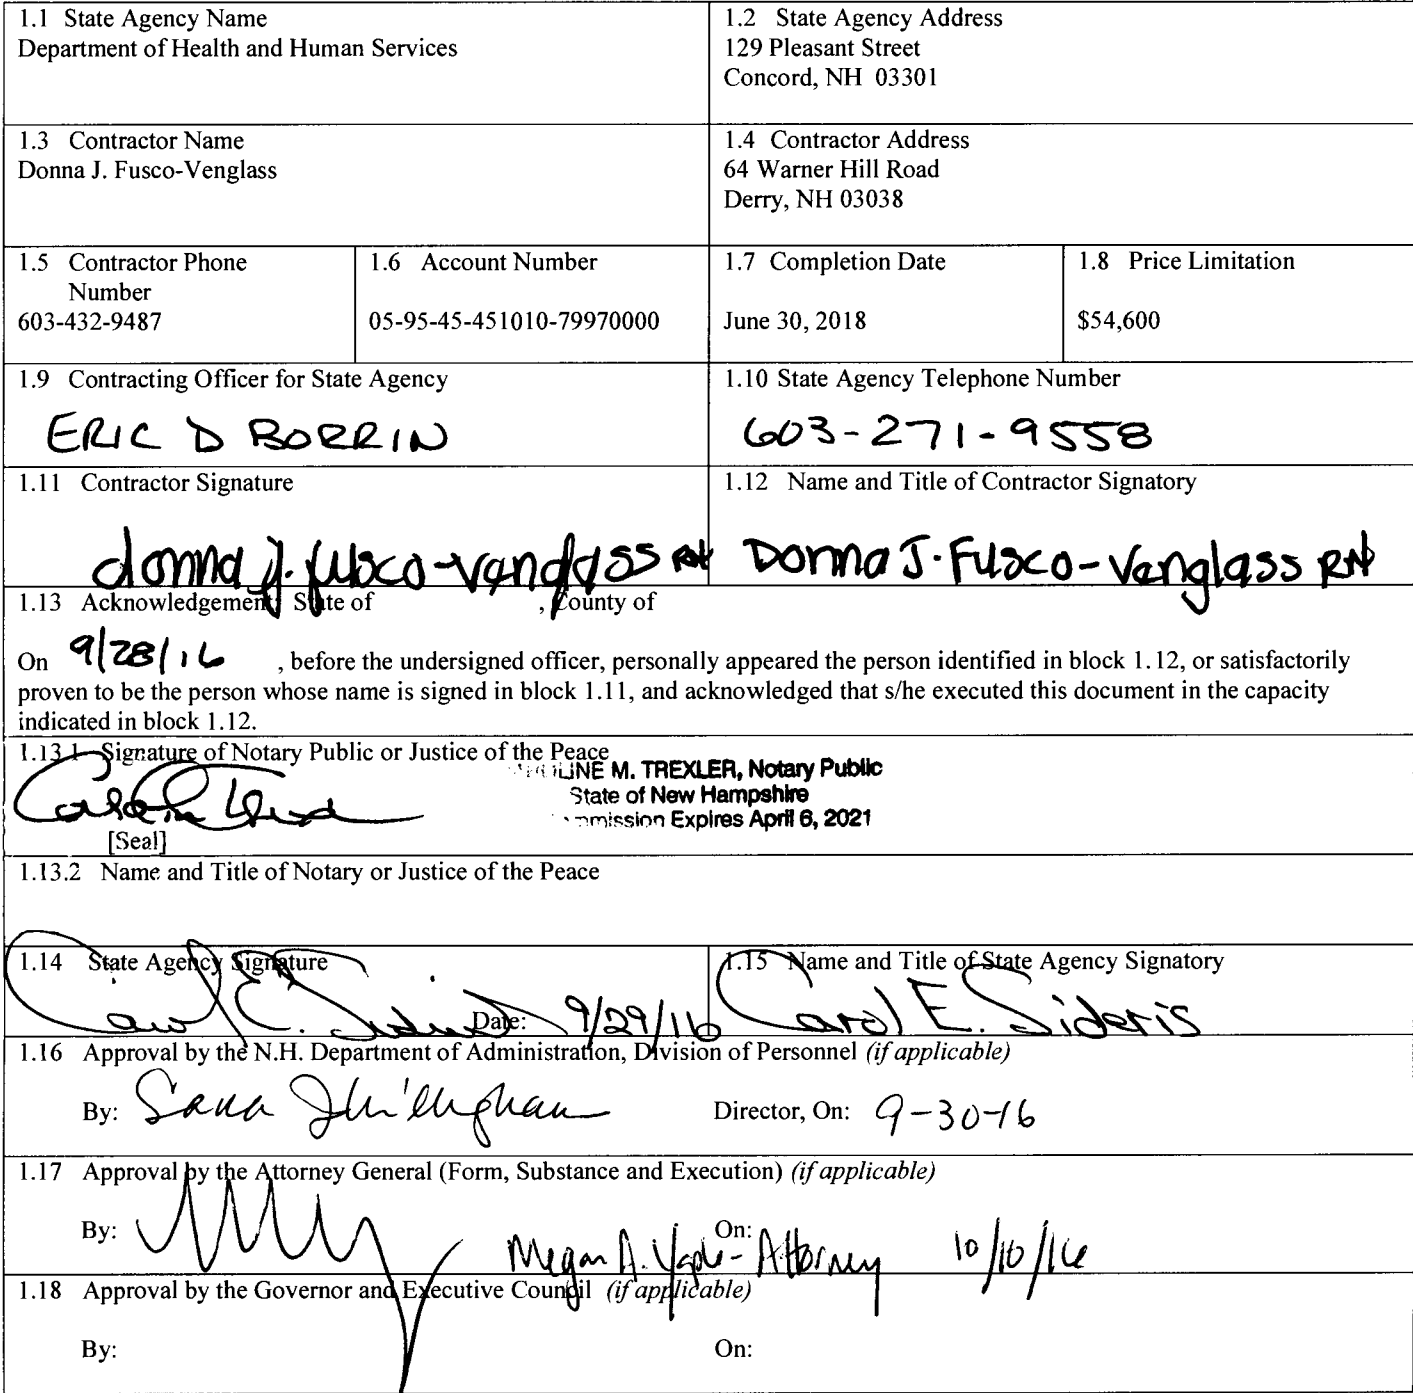 1.1 State Agency Name
Department of Health and Human Services
1.2 State Agency Address
129 Pleasant Street
Concord, NH 03301
1.3 Contractor Name
Donna J. Fusco-Venglass
1.4 Contractor Address
64 Warner Hill Road
Derry, NH 03038
1.5 Contractor Phone
Number
603-432-9487
1.6 Account Number
05-95-45-451010-79970000
1.7 Completion Date
June 30, 2018
1.8 Price Limitation
$54,600
1.9 Contracting Officer for State Agency
ERIC D BORRIN
1.10 State Agency Telephone Number
603-271-9558
1.11 Contractor Signature
donna j. fusco-venglass RN
1.12 Name and Title of Contractor Signatory
Donna J. Fusco-Venglass RN
1.13 Acknowledgement: State of , County of
On 9/28/16 , before the undersigned officer, personally appeared the person identified in block 1.12, or satisfactorily
proven to be the person whose name is signed in block 1.11, and acknowledged that s/he executed this document in the capacity
indicated in block 1.12.
1.13.1 Signature of Notary Public or Justice of the Peace
M. TREXLER, Notary Public
State of New Hampshire
Expires April 6, 2021
[Seal]
1.13.2 Name and Title of Notary or Justice of the Peace
1.14 State Agency Signature
Carol E. Sideris Date: 9/29/16
1.15 Name and Title of State Agency Signatory
Carol E. Sideris
1.16 Approval by the N.H. Department of Administration, Division of Personnel (if applicable)
By: Director, On: 9-30-16
1.17 Approval by the Attorney General (Form, Substance and Execution) (if applicable)
By: On:
Megan A. Yaple - Attorney 10/10/16
1.18 Approval by the Governor and Executive Council (if applicable)
By: On: